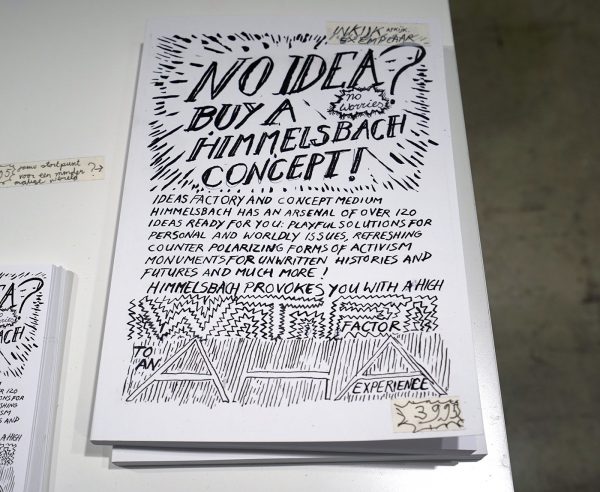 INKIJK AFKIJK
EXEMPLAAR
NO IDEA?
no
worries
BUY A
HIMMELSBACH
CONCEPT!
IDEAS FACTORY AND CONCEPT MEDIUM
HIMMELSBACH HAS AN ARSENAL OF OVER 120
IDEAS READY FOR YOU: PLAYFUL SOLUTIONS FOR
PERSONAL AND WORLDLY ISSUES, REFRESHING
COUNTER POLARIZING FORMS OF ACTIVISM
MONUMENTS FOR UNWRITTEN HISTORIES AND
FUTURES AND MUCH MORE!
HIMMELSBACH PROVOKES YOU WITH A HIGH
WTF
FACTOR
TO
AN
AHA
EXPERIENCE
startpunt
voor een minder
wereld
EA?
no
worries
ACH